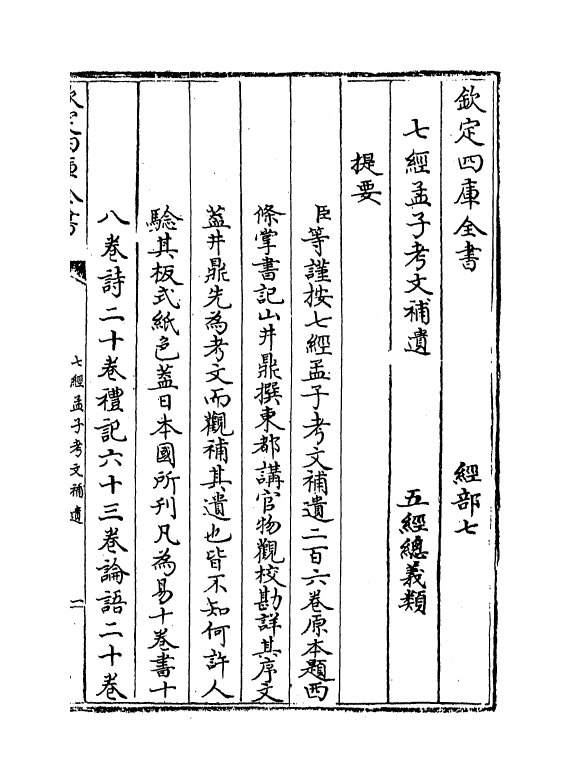 欽定四庫全書　經部七
七經孟子考文補遺　五經總義類
提要
臣等謹按七經孟子考文補遺二百六卷原本題西
條掌書記山井鼎撰東都講官物觀校勘詳其序文
葢井鼎先為考文而觀補其遺也皆不知何許人
驗其板式紙色葢日本國所刊凡為易十卷書十
八卷詩二十卷禮記六十三卷論語二十卷
欽定四庫全書
七經孟子考文補遺